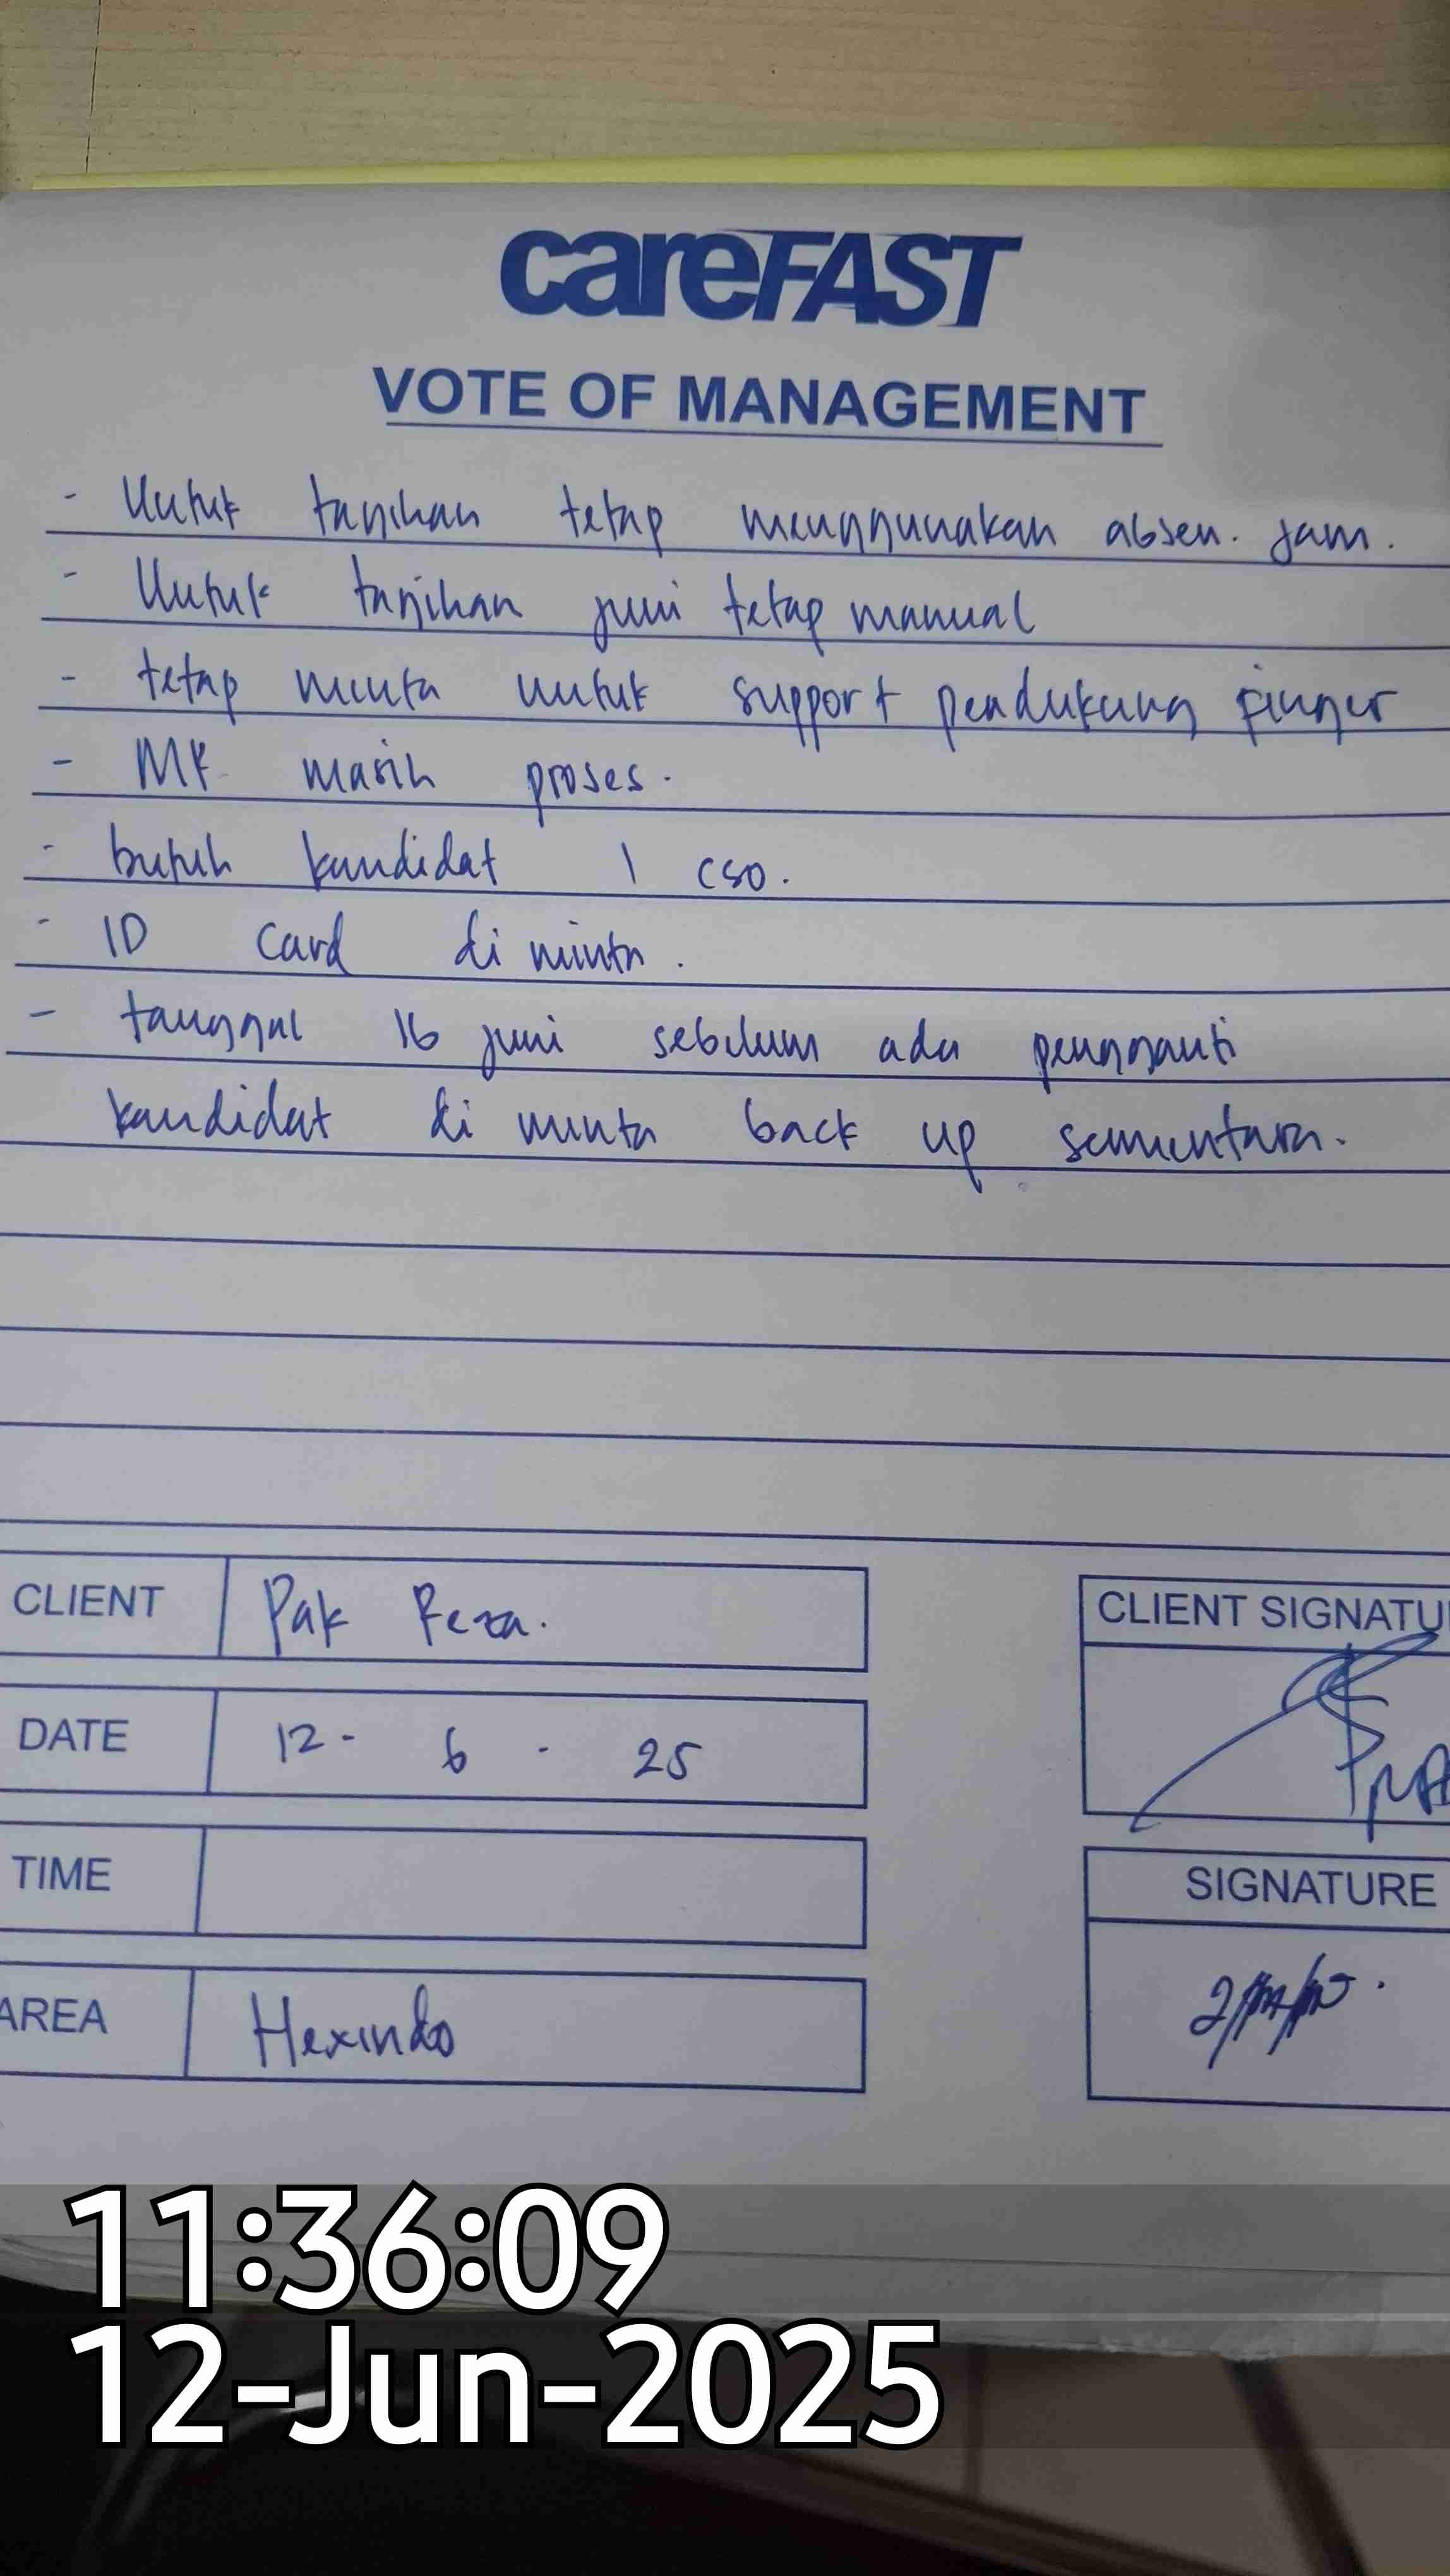 careFAST
VOTE OF MANAGEMENT
- Untuk tagihan tetap menggunakan absen. jam.
- Untuk tagihan juni tetap manual
- tetap minta untuk support pendukung finger
- MK masih proses.
- butuh kandidat 1 cso.
- ID Card di minta.
- tanggal 16 juni sebelum ada pengganti
kandidat di minta back up sementara.
CLIENT Pak Reza.
CLIENT SIGNATU
DATE 12 - 6 - 25
TIME
SIGNATURE
AREA Hexindo
11:36:09
12-Jun-2025